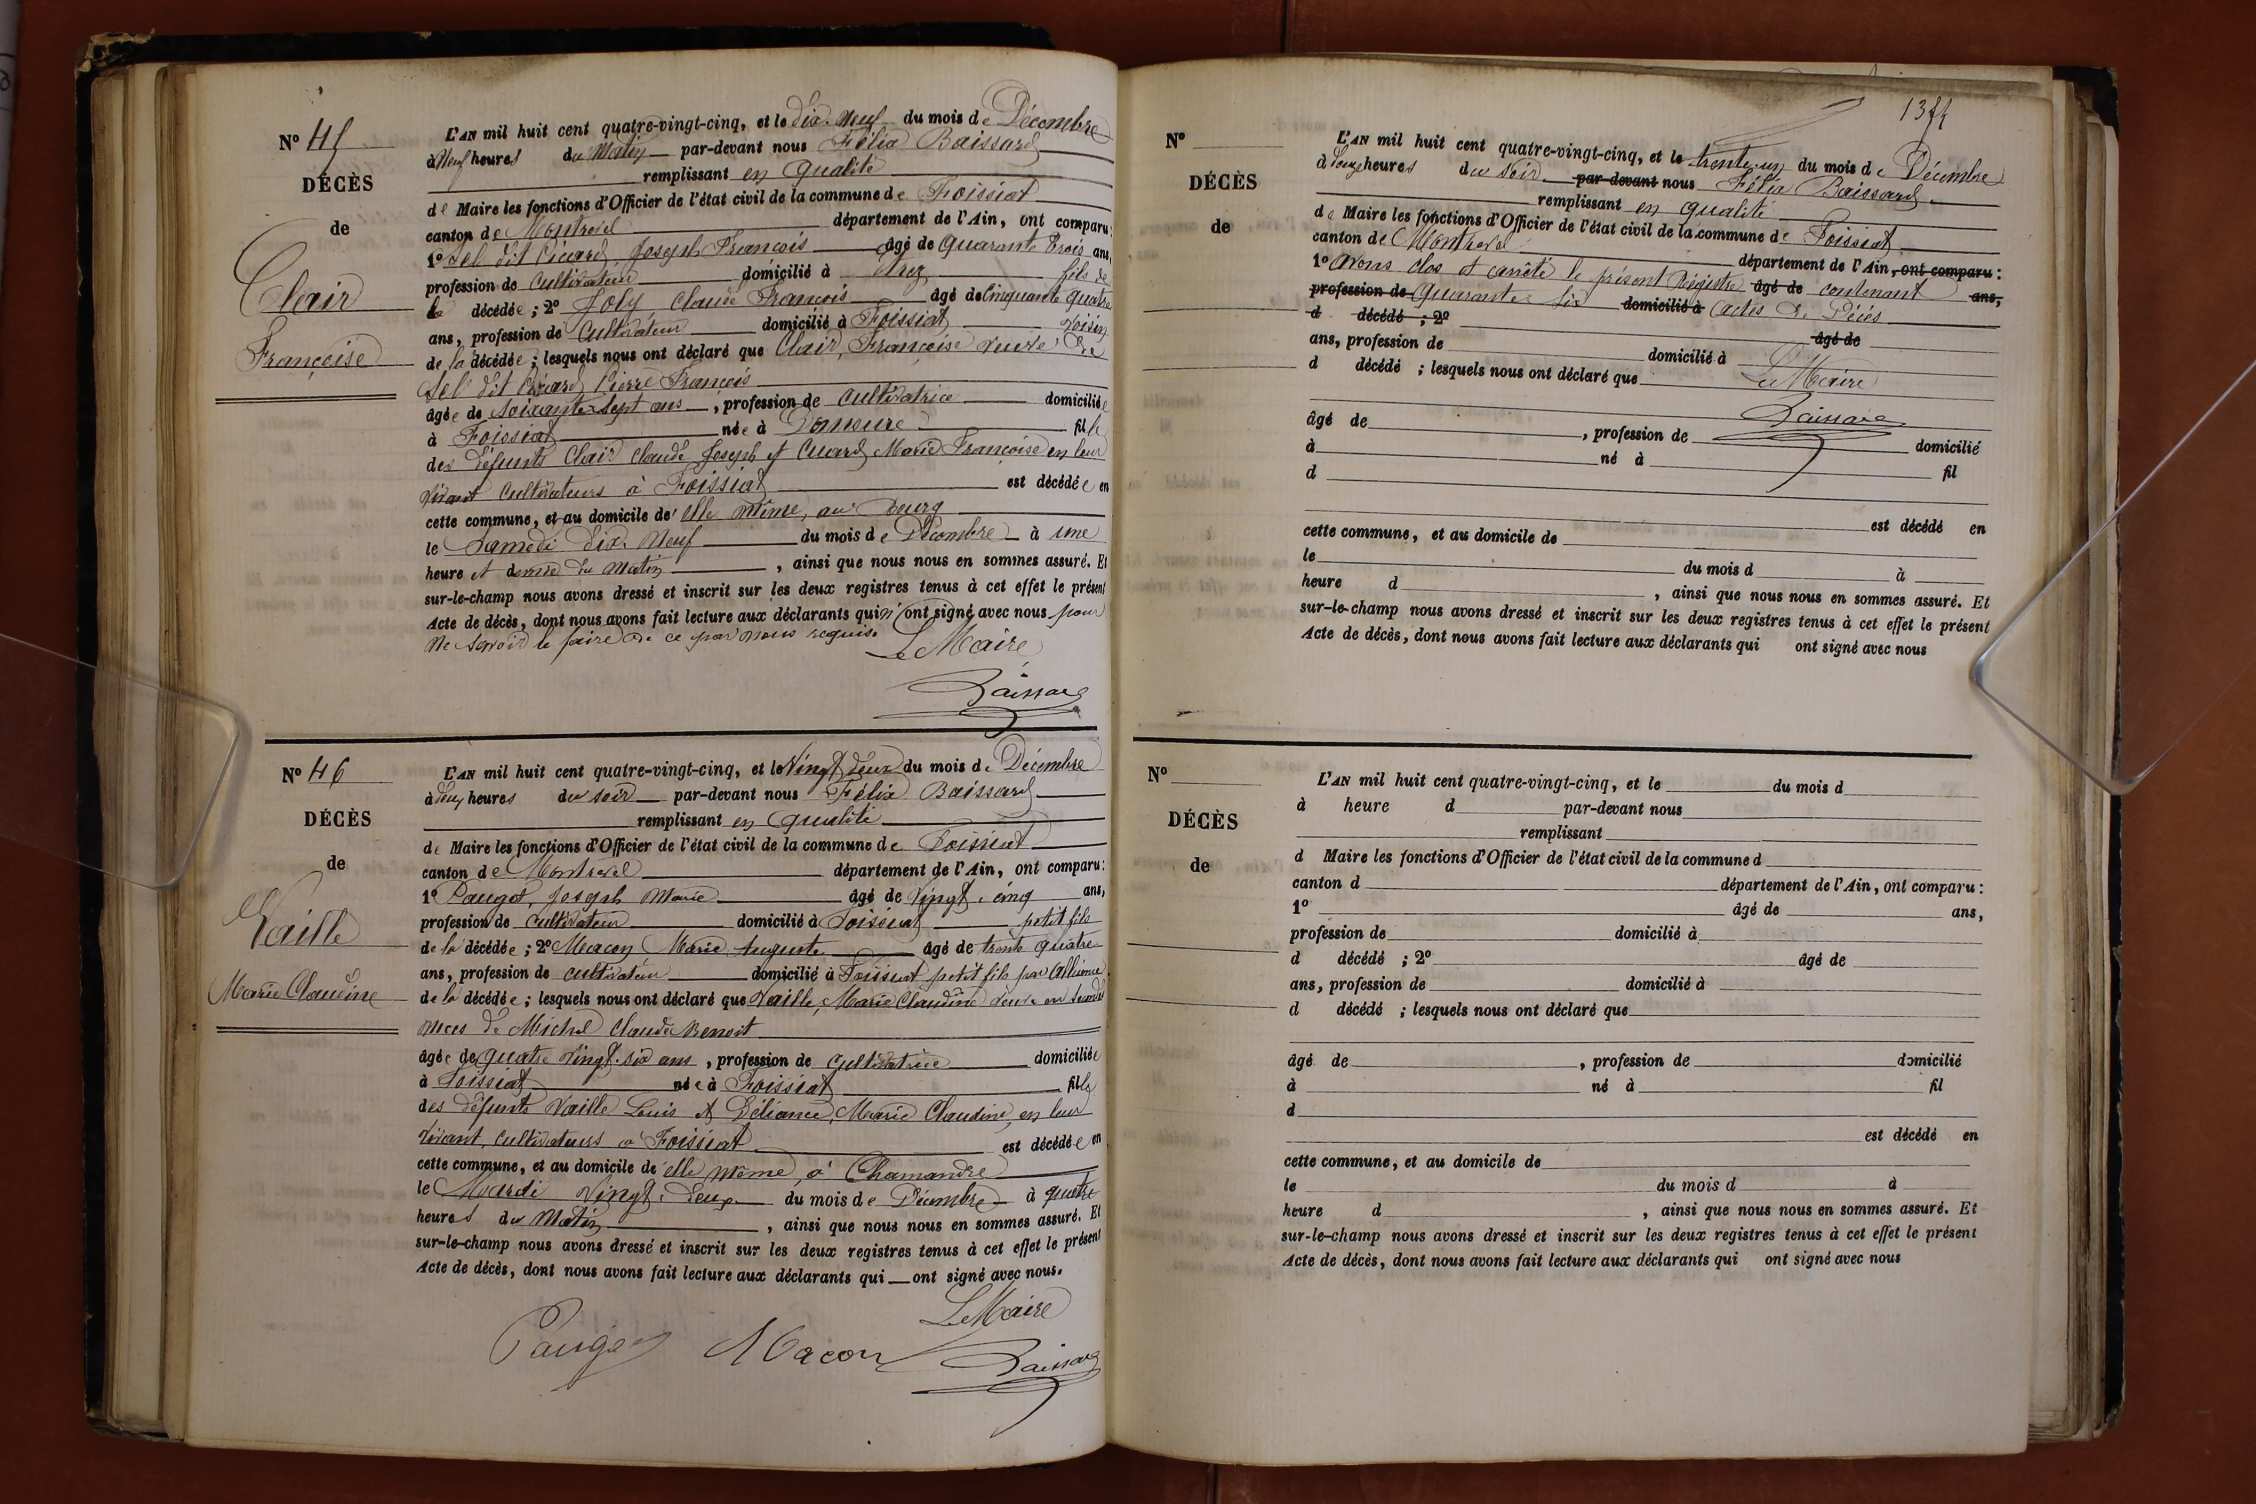 N° 45
DÉCÈS
de
Clair
Françoise
L'AN mil huit cent quatre-vingt-cinq, et le dix-neuf du mois de Décembre
à Neuf heures du Matin par-devant nous Félix Baissard
remplissant en qualité
de Maire les fonctions d'Officier de l'état civil de la commune de Foissiat
canton de Montrevel département de l'Ain, ont comparu:
1° Sel dit Cuard, Joseph François âgé de quarante trois ans,
profession de cultivateur domicilié à Etrez fils de
la décédée ; 2° Joly Claude François âgé de Cinquante quatre
ans, profession de cultivateur domicilié à Foissiat voisin
de la décédée ; lesquels nous ont déclaré que Clair, Françoise veuve de
Sel dit Cuard Pierre François
âgée de soixante-sept ans , profession de cultivatrice domiciliée
à Foissiat née à Domsure fille
des défunts Clair Claude Joseph et Cuard Marie Françoise en leur
vivant cultivateurs à Foissiat est décédée en
cette commune, et au domicile de elle même, au Bourg
le Samedi dix-Neuf du mois de Décembre à une
heure et demie du matin , ainsi que nous nous en sommes assuré. Et
sur-le-champ nous avons dressé et inscrit sur les deux registres tenus à cet effet le présent
Acte de décès, dont nous avons fait lecture aux déclarants qui n'ont signé avec nous pour
ne savoir le faire de ce par nous requis.
Le Maire
Baissard
N° 46
DÉCÈS
de
Vaille
Marie Claudine
L'AN mil huit cent quatre-vingt-cinq, et le Vingt deux du mois de Décembre
à deux heures du soir par-devant nous Félix Baissard
remplissant en qualité
de Maire les fonctions d'Officier de l'état civil de la commune de Foissiat
canton de Montrevel département de l'Ain, ont comparu:
1° Pauget, Joseph Marie âgé de Vingt-cinq ans,
profession de cultivateur domicilié à Foissiat petit fils
de la décédée ; 2° Macon Marie Auguste âgé de trente quatre
ans, profession de cultivateur domicilié à Foissiat petit fils par alliance
de la décédée ; lesquels nous ont déclaré que Vaille, Marie Claudine veuve en secondes
noces de Michel Claude Benoit
âgée de quatre vingt-six ans , profession de cultivatrice domiciliée
à Foissiat née à Foissiat fille
des défunts Vaille Louis et Déliance, Marie Claudine, en leur
vivant, cultivateurs à Foissiat est décédée en
cette commune, et au domicile de elle même, à Chamandre
le Mardi Vingt-deux du mois de Décembre à quatre
heures du Matin , ainsi que nous nous en sommes assuré. Et
sur-le-champ nous avons dressé et inscrit sur les deux registres tenus à cet effet le présent
Acte de décès, dont nous avons fait lecture aux déclarants qui ont signé avec nous.
Le Maire
Pauget Macon Baissard
N°
DÉCÈS
de
L'AN mil huit cent quatre-vingt-cinq, et le trente-un du mois de Décembre
à deux heures du soir par-devant nous Félix Baissard
remplissant en qualité
de Maire les fonctions d'Officier de l'état civil de la commune de Foissiat
canton de Montrevel département de l'Ain, ont comparu:
1° avons clos et arrêté le présent Registre âgé de contenant ans,
profession de quarante-six domicilié à actes de Décès
d décédé ; 2° âgé de
ans, profession de domicilié à
d décédé ; lesquels nous ont déclaré que Le Maire
Baissard
âgé de , profession de domicilié
à né à fil
d
est décédé en
cette commune, et au domicile de
le du mois d à
heure d , ainsi que nous nous en sommes assuré. Et
sur-le-champ nous avons dressé et inscrit sur les deux registres tenus à cet effet le présent
Acte de décès, dont nous avons fait lecture aux déclarants qui ont signé avec nous
N°
DÉCÈS
de
L'AN mil huit cent quatre-vingt-cinq, et le du mois d
à heure d par-devant nous
remplissant
d Maire les fonctions d'Officier de l'état civil de la commune d
canton d département de l'Ain, ont comparu:
1° âgé de ans,
profession de domicilié à
d décédé ; 2° âgé de
ans, profession de domicilié à
d décédé ; lesquels nous ont déclaré que
âgé de , profession de domicilié
à né à fil
d
est décédé en
cette commune, et au domicile de
le du mois d à
heure d , ainsi que nous nous en sommes assuré. Et
sur-le-champ nous avons dressé et inscrit sur les deux registres tenus à cet effet le présent
Acte de décès, dont nous avons fait lecture aux déclarants qui ont signé avec nous